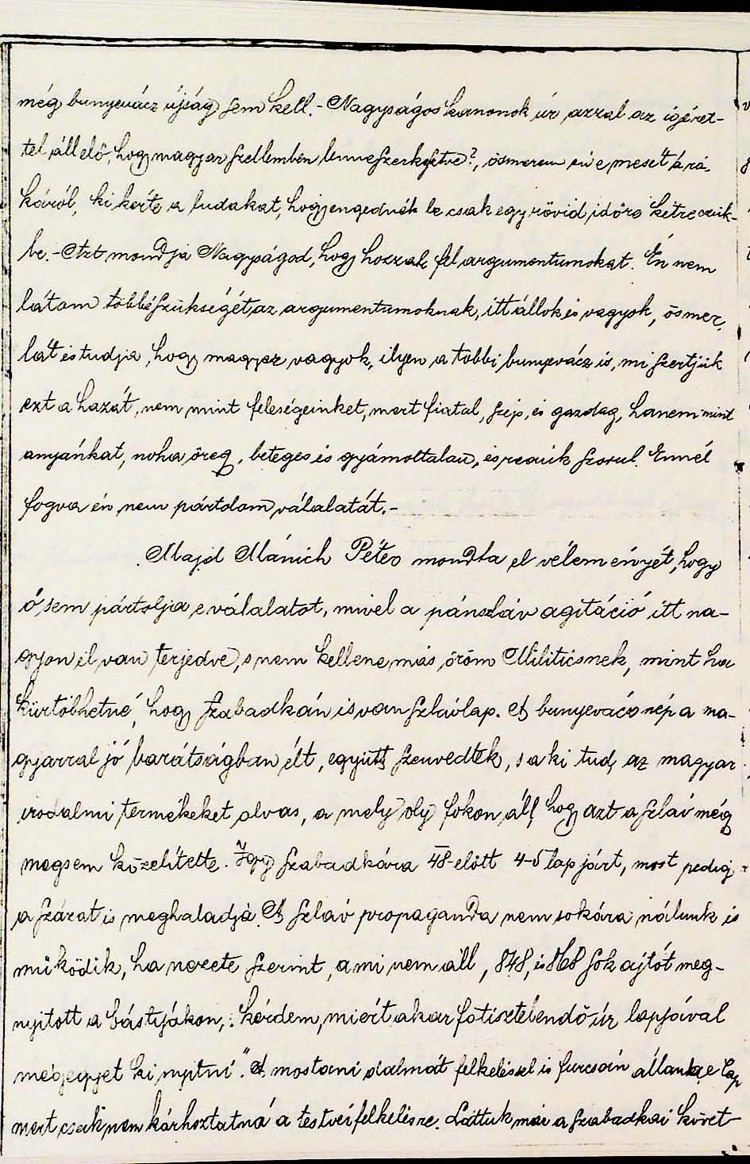 még bunyevácz újság sem kell. - Nagyságos kanonok úr azzal az igéret-
tel áll elő, hogy magyar szellemben lenne szerkesztve?, ösmerem én e mesét a ró-
káról, ki kérte a ludakat, hogy engednék be csak egy rövid, időre ketreczük-
be. - Azt mondja Nagyságod, hogy hozzak fel argumentumokat. Én nem
látom többé szükségét az argumentumoknak, itt állok és vagyok, ösmer,
lát és tudja, hogy magyar vagyok, ilyen a többi bunyevácz is, mi szertjük
ezt a hazát, nem mint feleségeinket, mert fiatal, szép, és gazdag, hanem mint
anyánkat, noha öreg, beteges és gyámoltalan, és reánk szorul. Ennél
fogva én nem pártolom válalatát. -
Majd Mánich Péter mondta el véleményét, hogy
ő sem pártolja e válalatot, mivel a pánszláv agitáció itt na-
gyon el van terjedve, s nem kellene más öröm Militicsnek, mint ha
kürtölhetné, hogy Szabadkán is van szlávlap. A bunyevácz nép a ma-
gyarral jó barátságban élt, együtt szenvedtek, s aki tud, az magyar
irodalmi termékeket olvas, a mely oly fokon áll, hogy azt a szláv még
megsem közelítette. Igy Szabadkára 48-előtt 4-5 lap járt, most pedig
a százat is meghaladja. A szláv propaganda nem sokára nálunk is
működik, ha nézete szerint, a mi nem áll, 848, is 868 sok ajtót meg-
nyitott a bástyákon, : kérdem, miért akar főtisztelendő úr lapjával
mégegyet ki nyitni". A mostani dalmát felkeléssel is furcsán állana e lap
mert csak nem kárhoztatná a testvéi felkelésre. Láttuk már a szabadkai követ